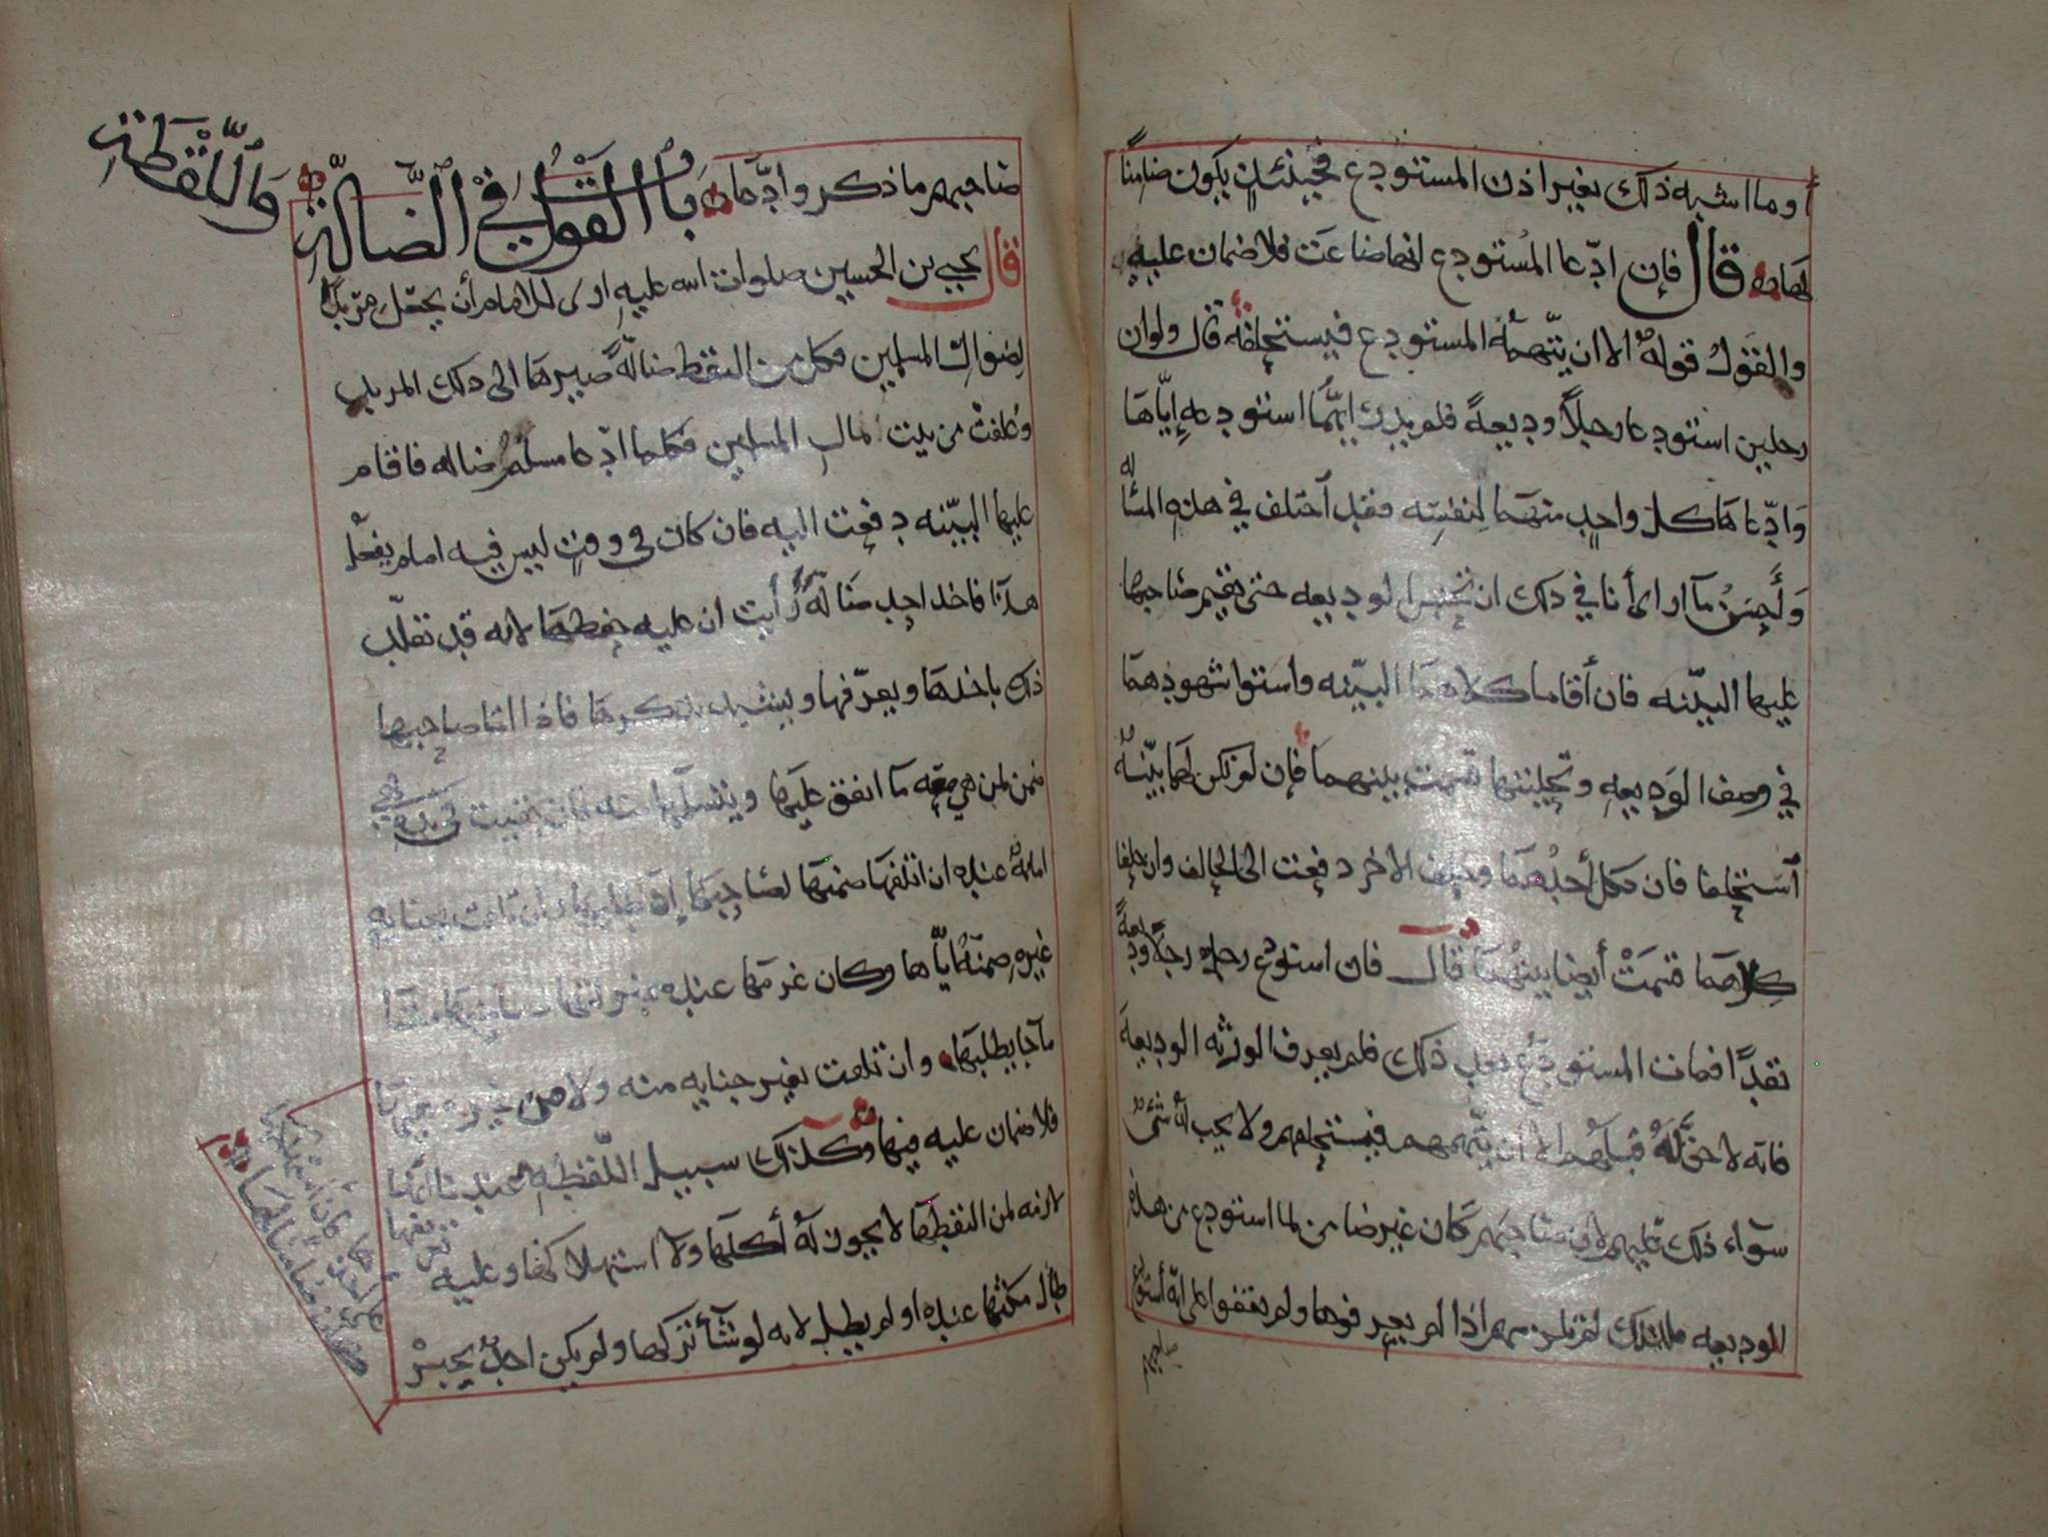 أو ما اشبه ذلك بغير اذن المستودع فحينئذٍ يكون ضامنًا
لها قال فإن ادّعا المُستودع انها ضاعَت فلا ضمان عليه
والقَوْلُ قولهُ الا ان يتّهمهُ المستودِع فيستحلفهُ قال ولو ان
رجلين استودعا رجلاً وديعهً فلم يدرِ ايُّهما استودعهِ إيّاها
وَادّعاها كل واحدٍ منهما لِنفسِه فقد آختلف في هذهِ المسأله
وَأحسَنُ مآ ارى أنا في ذلك ان تحبس الوديعه حتى يقيم صاحبها
عليها البيّنه فان أقاما كلاهما البيّنه واستوا شهودهما
في وصف الوَديعهِ وتحليتها قسمت بينهما فإن لم تكن لهما بيّنهٌ
آستحلفا فان نكل أحدُهما وحلف الاخر دفعت الى الحالف وان حلفا
كِلاهما قسمَتْ أيضا بينهُما قال فان استودع رجلٌ رجلاً وديعهً
نقدًا فمات المستودَع بعد ذلك فلم يعرف الورثه الوديعهَ
فانه لا حق لَهُ قبلهُم الا ان يتّهمهم فيستحلفهم ولا يجب لهُ شئٌ
سوآء ذلك عليهم لان صاحبهم كان غير ضامن لما استودع من هذهِ
الوديعه فلذلك لم يلزمهم اذا لم يعرفوها ولم يقفوا على انه أستودع
صاحبهم
صاحبهم ما ذكر وادّعاه بَابُ القولُ في الضالّةِ وَاللُّقَطَةِ
قال يحيى بن الحسين صلوات الله عليهِ ارى للامام أن يجعل مربدًا
لِضوالِّ المسلمين فكل من التقط ضالّهً صيرها الى ذلك المربد
وعُلفتْ من بيت مال المسلمين فكلما ادّعا مسلمٌ ضاله فاقام
عليها البيّنه دفعت اليه فان كان في وقتٍ ليس فيه امام يفعل
هذا فاخذ احد ضالّهً رأيت ان عليه حفظها لانه قد تقلّد
ذلك باخذها ويعرّفها وينشد بذكرها فاذا اتا صاحبها
ضمن لمن هي معه ما انفق عليها ويتسلمها منه فان بقيت في يده فهي
امانهٌ عنده ان اتلفها ضمنها لصاحبها إذا طلبها وان تلفت بجنايهِ
غيرهِ ضمنّهُ ايّاها وكان غرمها عنده بمنزلتها
مآ جا يطلبها وان تلفت بغير جنايه منه ولا من غيره
فلا ضمان عليه فيها وكذلك سبيل اللّقطهِ عندنا انها
لازمه لمن التقطها لا يجوز لهُ أكلها ولا استهلاكها وعليه تعريفها
طال مكثها عنده او لم يطل لانه لو شآء تركها ولم يكن احدٌ يجبرْ